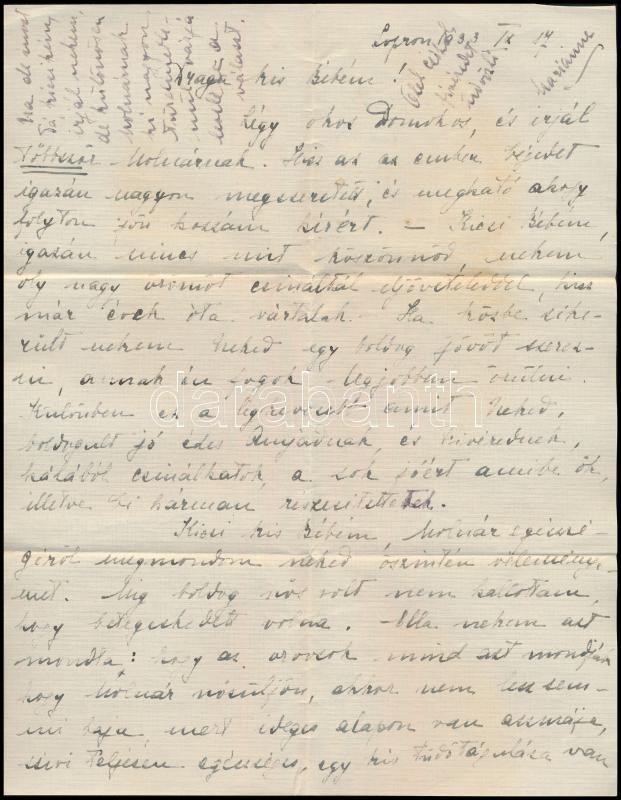 Sopron 1933 IX 14
Drága kis Bébém!
Légy okos Domokos, és írjál
többször Molnárnak. Hisz az az ember téged
igazán nagyon megszeretett, és megható ahogy
folyton jön hozzám hírért. – Kicsi Bébém,
igazán nincs mit köszönnöd, nekem
oly nagy örömöt csináltál eljöveteleddel, hisz
már évek óta vártalak. Ha közbe sike-
rült nekem Neked egy boldog jövőt szerez-
ni, annak én fogok legjobban örülni.
Különben ez a legkevesebb amit Neked,
boldogult jó édes Anyádnak, és nővérednek,
hálából csinálhatok, a sok jóért amibe ők,
illetve ti hárman részesítettetek.
Kicsi kis Bébém, Molnár egészsé-
géről megmondom neked őszintén vélemény-
met. Míg boldog nős volt nem hallottam,
hogy betegeskedett volna. – Olla nekem azt
mondta: hogy az orvosok mind azt mondják
hogy Molnár nősüljön, akkor nem lesz sem-
mi baja, mert ideges alapon van asmája,
szíve teljesen egészséges, egy kis tüdőtágulása van
Ha de most
írjál nekem,
de különösen
Molnárnak
is nagyon
várja
a
választ
Marianne
darabanth